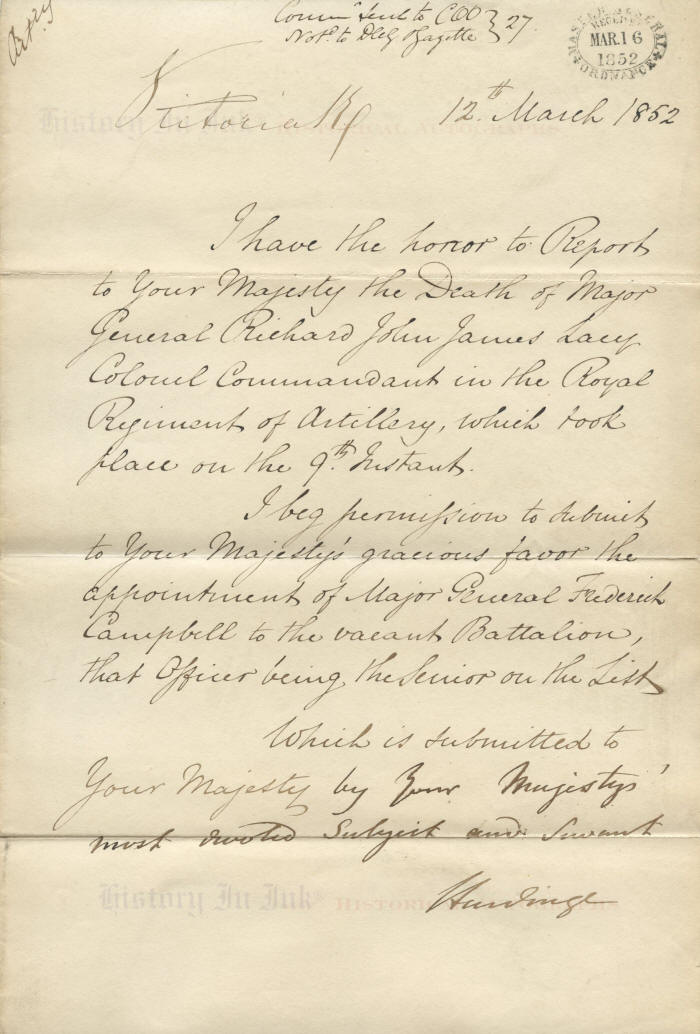 Arty
Comm<sup>n</sup> sent to COO } 27
Not. to Gazette
MASTER GENERAL
RECEIVED
MAR. 16
1852
ORDNANCE
Victoria R
12th. March 1852
History In Ink HISTORICAL AUTOGRAPHS
I have the honor to Report
to Your Majesty the Death of Major
General Richard John James Lacy
Colonel Commandant in the Royal
Regiment of Artillery, which took
place on the 9th. Instant.
I beg permission to submit
to Your Majesty's gracious favor the
appointment of Major General Frederick
Campbell to the vacant Battalion,
that Officer being the Senior on the List
Which is submitted to
Your Majesty by Your Majestys'
most devoted Subject and Servant
Hardinge
History In Ink HISTORICAL AUTOGRAPHS